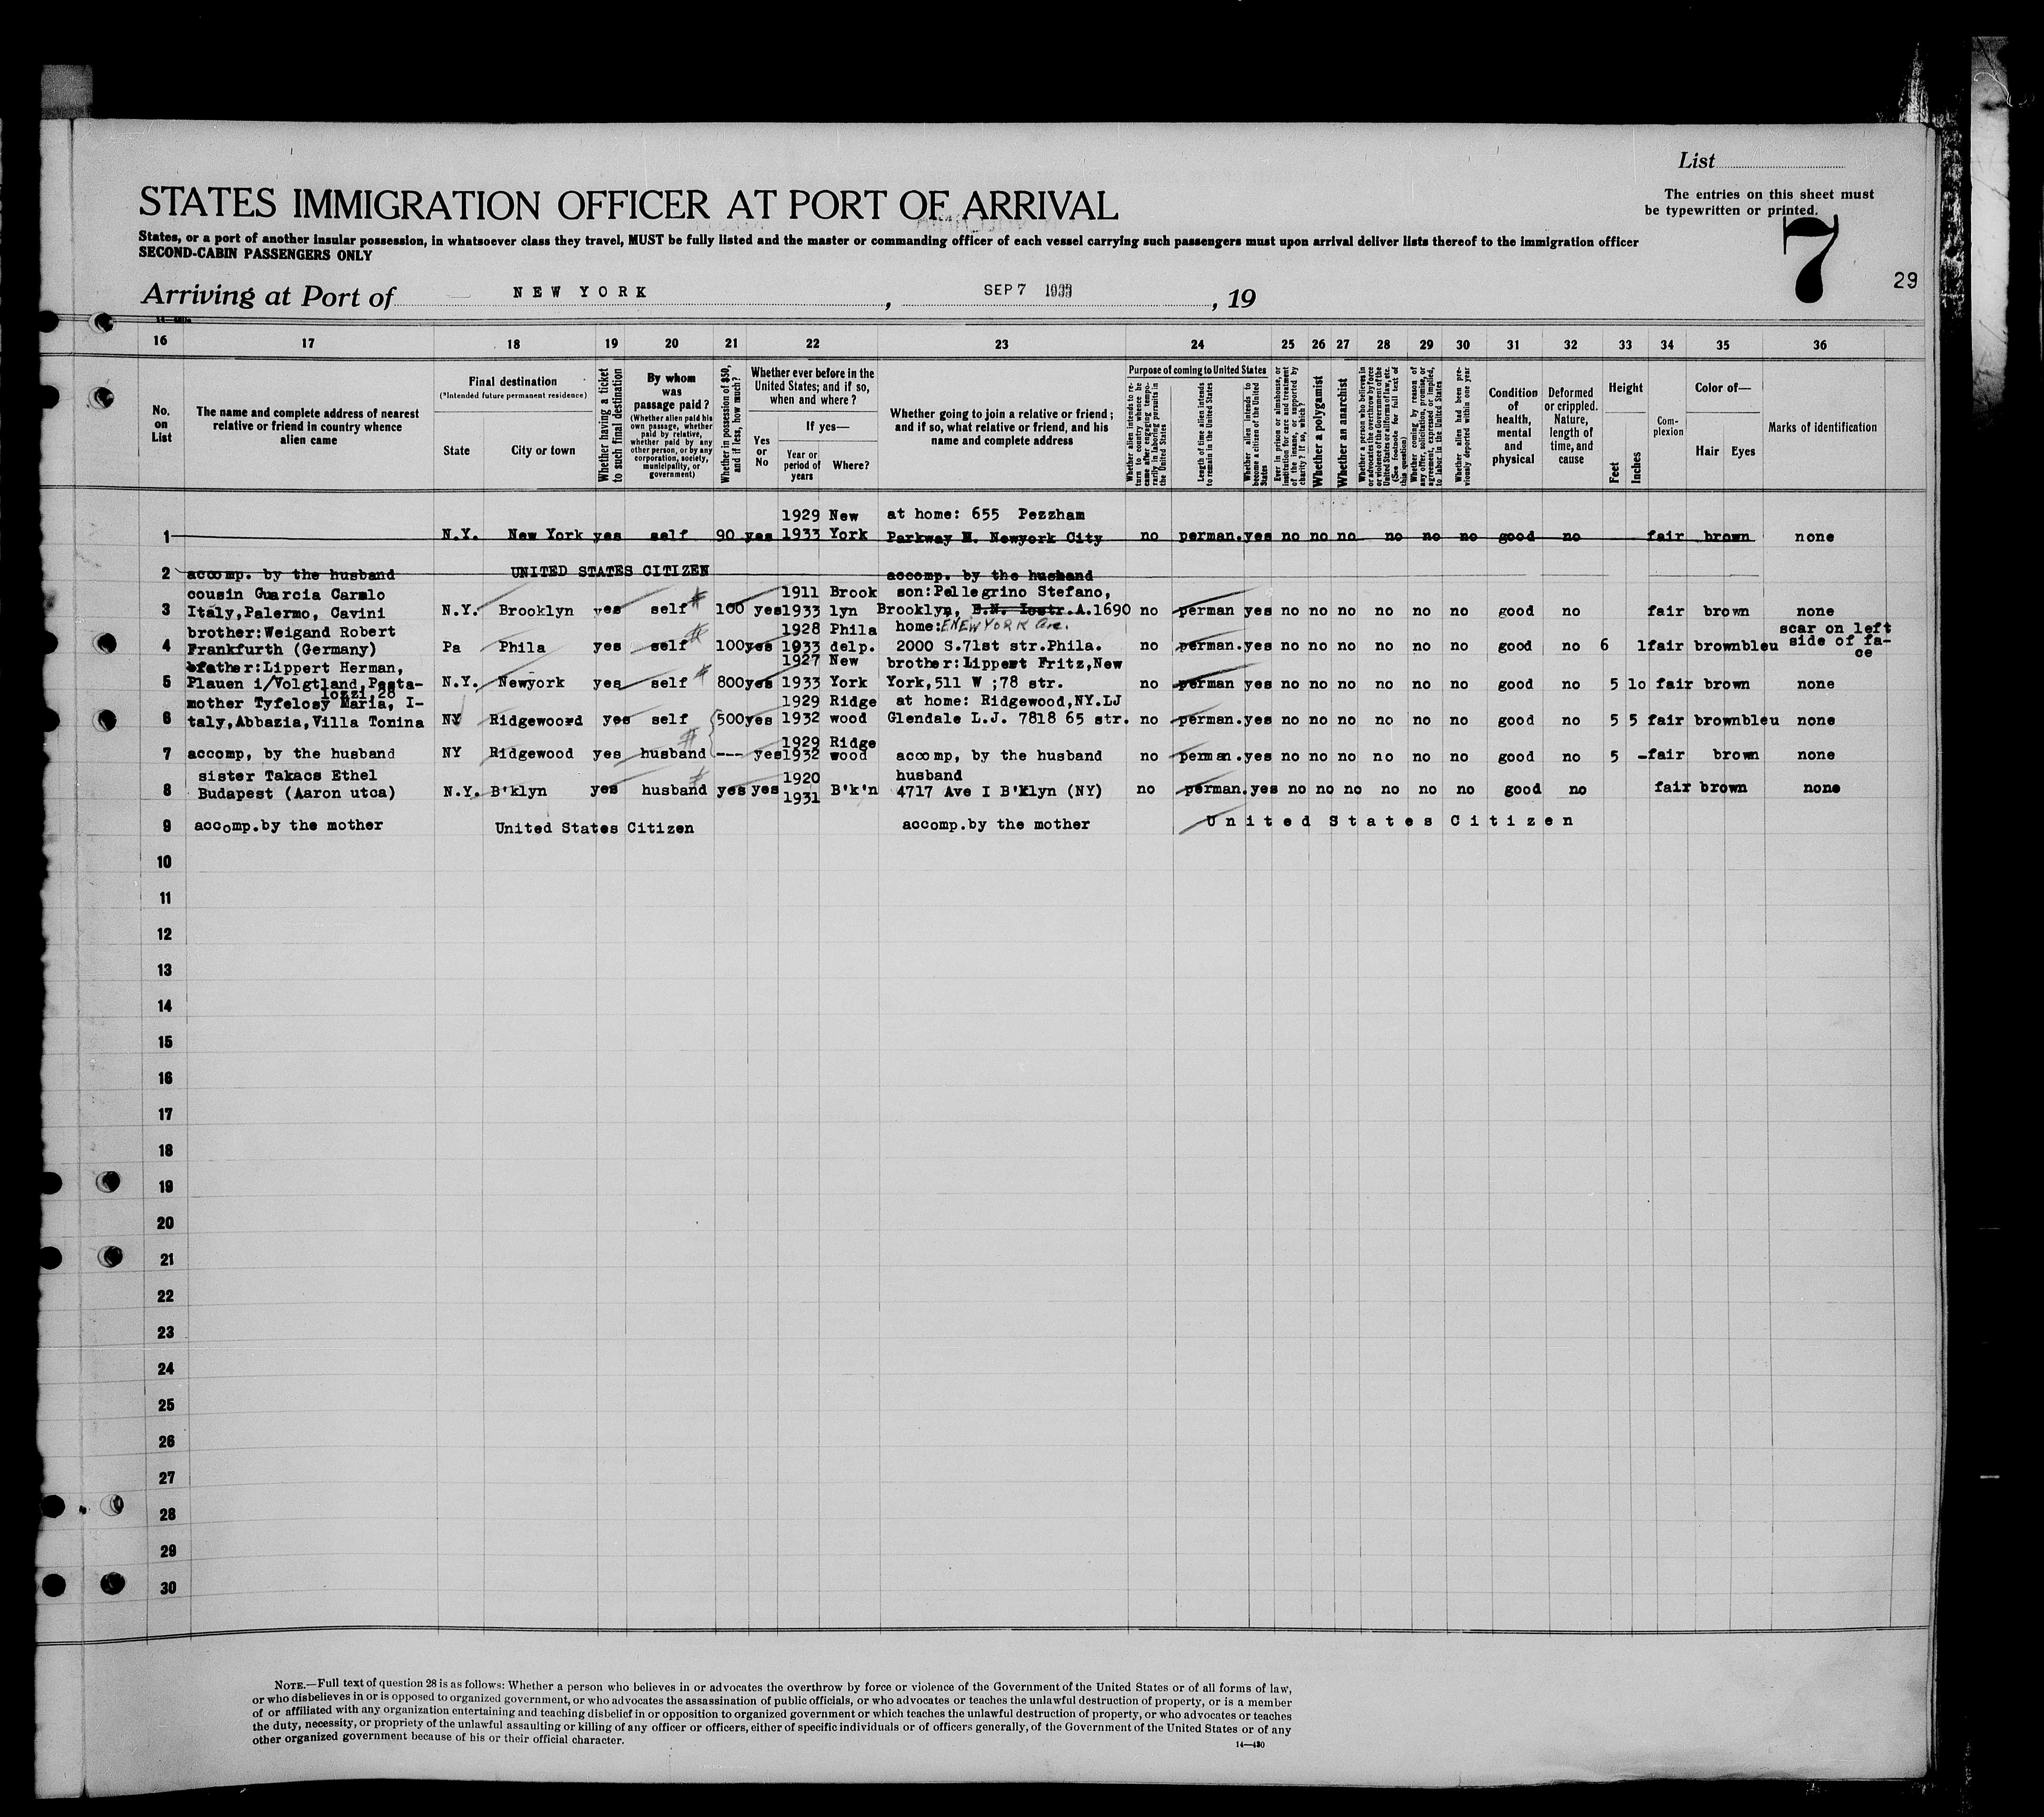 List
STATES IMMIGRATION OFFICER AT PORT OF ARRIVAL
The entries on this sheet must
be typewritten or printed.
States, or a port of another insular possession, in whatsoever class they travel, MUST be fully listed and the master or commanding officer of each vessel carrying such passengers must upon arrival deliver lists thereof to the immigration officer
SECOND-CABIN PASSENGERS ONLY
7
29
Arriving at Port of NEW YORK, SEP 7 1933, 19
16 17 18 19 20 21 22 23 24 25 26 27 28 29 30 31 32 33 34 35 36
No. on List
The name and complete address of nearest relative or friend in country whence alien came
Final destination
(*Intended future permanent residence)
State
City or town
Whether having a ticket to such final destination
By whom was passage paid?
(Whether alien paid his own passage, whether paid by relative, whether paid by any other person, or by any corporation, society, municipality, or government)
Whether in possession of $50, and if less, how much?
Whether ever before in the United States; and if so, when and where?
Yes or No
If yes—
Year or period of years
Where?
Whether going to join a relative or friend; and if so, what relative or friend, and his name and complete address
Purpose of coming to United States
Whether alien intends to return to country whence he came after engaging temporarily in laboring pursuits in the United States
Length of time alien intends to remain in the United States
Whether alien intends to become a citizen of the United States
Ever in prison or almshouse, or institution for care and treatment of the insane, or supported by charity? If so, which?
Whether a polygamist
Whether an anarchist
Whether a person who believes in or advocates the overthrow by force or violence of the Government of the United States or all forms of law, etc. (See footnote for full text of this question)
Whether coming by reason of any offer, solicitation, promise, or agreement, expressed or implied, to labor in the United States
Whether alien had been previously deported within one year
Condition of health, mental and physical
Deformed or crippled. Nature, length of time, and cause
Height
Feet
Inches
Complexion
Color of—
Hair Eyes
Marks of identification
1929 New at home: 655 Pezzham
1 N.Y. New York yes self 90 yes 1933 York Parkway N. Newyork City no perman. yes no no no no no no good no fair brown none
2 accomp. by the husband UNITED STATES CITIZEN accomp. by the husband
cousin Guarcia Carmlo 1911 Brook son:Pellegrino Stefano,
3 Italy,Palermo, Cavini N.Y. Brooklyn yes self 100 yes 1933 lyn Brooklyn, A.1690 no perman yes no no no no no no good no fair brown none
brother:Weigand Robert 1928 Phila home: E NEW YORK Ave. scar on left
4 Frankfurth (Germany) Pa Phila yes self 100 yes 1933 delp. 2000 S.71st str.Phila. no perman. yes no no no no no no good no 6 1 fair brown bleu side of fa-
ce
father:Lippert Herman, 1927 New brother:Lippert Fritz,New
5 Plauen i/Volgtland,Pesta- N.Y. Newyork yes self 800 yes 1933 York York,511 W ;78 str. no perman yes no no no no no no good no 5 10 fair brown none
lozzi,28
mother Tyfelosy Maria, I- 1929 Ridge at home: Ridgewood,NY.LJ
6 taly,Abbazia,Villa Tonina NY Ridgewoord yes self 500 yes 1932 wood Glendale L.J. 7818 65 str. no perman. yes no no no no no no good no 5 5 fair brown bleu none
1929 Ridge
7 accomp, by the husband NY Ridgewood yes husband --- yes 1932 wood accomp, by the husband no perman. yes no no no no no no good no 5 - fair brown none
sister Takacs Ethel 1920 husband
8 Budapest (Aaron utca) N.Y. B'klyn yes husband yes yes 1931 B'k'n 4717 Ave I B'Klyn (NY) no perman. yes no no no no no no good no fair brown none
9 accomp.by the mother United States Citizen accomp.by the mother United States Citizen
10
11
12
13
14
15
16
17
18
19
20
21
22
23
24
25
26
27
28
29
30
NOTE.—Full text of question 28 is as follows: Whether a person who believes in or advocates the overthrow by force or violence of the Government of the United States or of all forms of law,
or who disbelieves in or is opposed to organized government, or who advocates the assassination of public officials, or who advocates or teaches the unlawful destruction of property, or is a member
of or affiliated with any organization entertaining and teaching disbelief in or opposition to organized government or which teaches the unlawful destruction of property, or who advocates or teaches
the duty, necessity, or propriety of the unlawful assaulting or killing of any officer or officers, either of specific individuals or of officers generally, of the Government of the United States or of any
other organized government because of his or their official character.
14—430